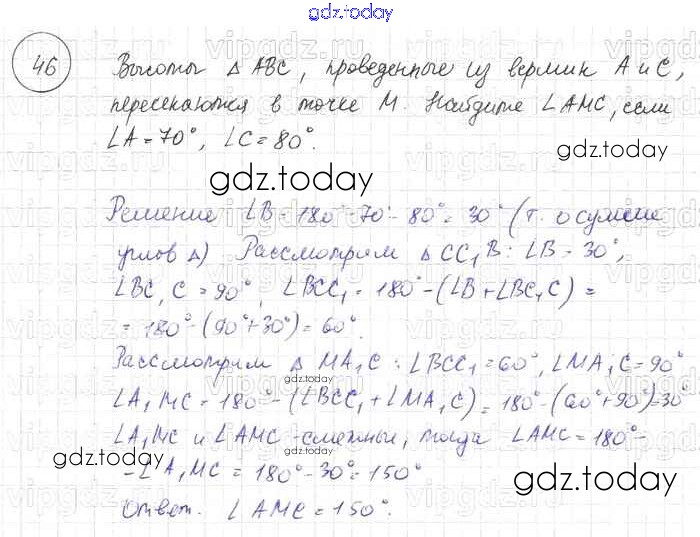 gdz.today
46
Высоты △ ABC, проведенные из вершин A и C,
пересекаются в точке M. Найдите ∠AMC, если
∠A = 70°, ∠C = 80°.
gdz.today
gdz.today
Решение ∠B = 180° - 70° - 80° = 30° (т. о сумме
углов △) Рассмотрим △ CC₁B: ∠B = 30°,
∠BC₁C = 90°, ∠BCC₁ = 180° - (∠B + ∠BC₁C) =
= 180° - (90° + 30°) = 60°.
Рассмотрим △ MA₁C: ∠BCC₁ = 60°, ∠MA₁C = 90°
gdz.today
∠A₁MC = 180° - (∠BCC₁ + ∠MA₁C) = 180° - (60° + 90°) = 30°
∠A₁MC и ∠AMC - смежные, тогда ∠AMC = 180° -
gdz.today
- ∠A₁MC = 180° - 30° = 150°
gdz.today
Ответ. ∠AMC = 150°.